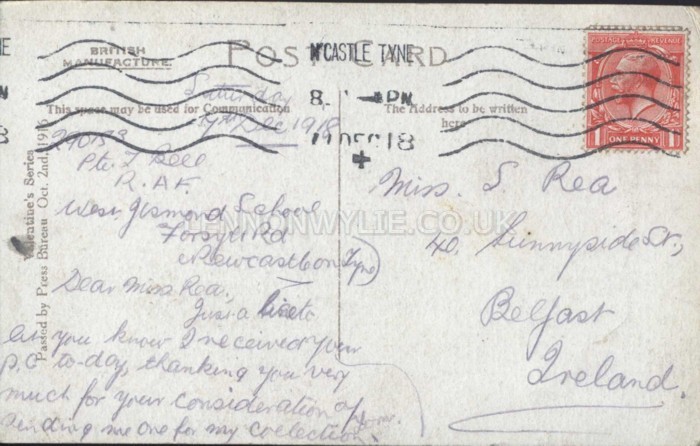 BRITISH
MANUFACTURE
POST CARD
N'CASTLE TYNE
8. PM
DEC 18
POSTAGE REVENUE
1 1
ONE PENNY
This space may be used for Communication
The Address to be written
here
Valentine's Series
Passed by Press Bureau. Oct. 2nd, 1916
LENNONWYLIE.CO.UK
Saturday
7th Dec 1918
290133
Pte. J Bell
R.A.F.
West Jesmond School
Forsyth Rd
Newcastle on Tyne
Dear Miss Rea,
Just a line to
let you know I received your
P.C to-day, thanking you very
much for your consideration of
sending me one for my collection.
Miss. S. Rea
40, Sunnyside St.,
Belfast
Ireland.